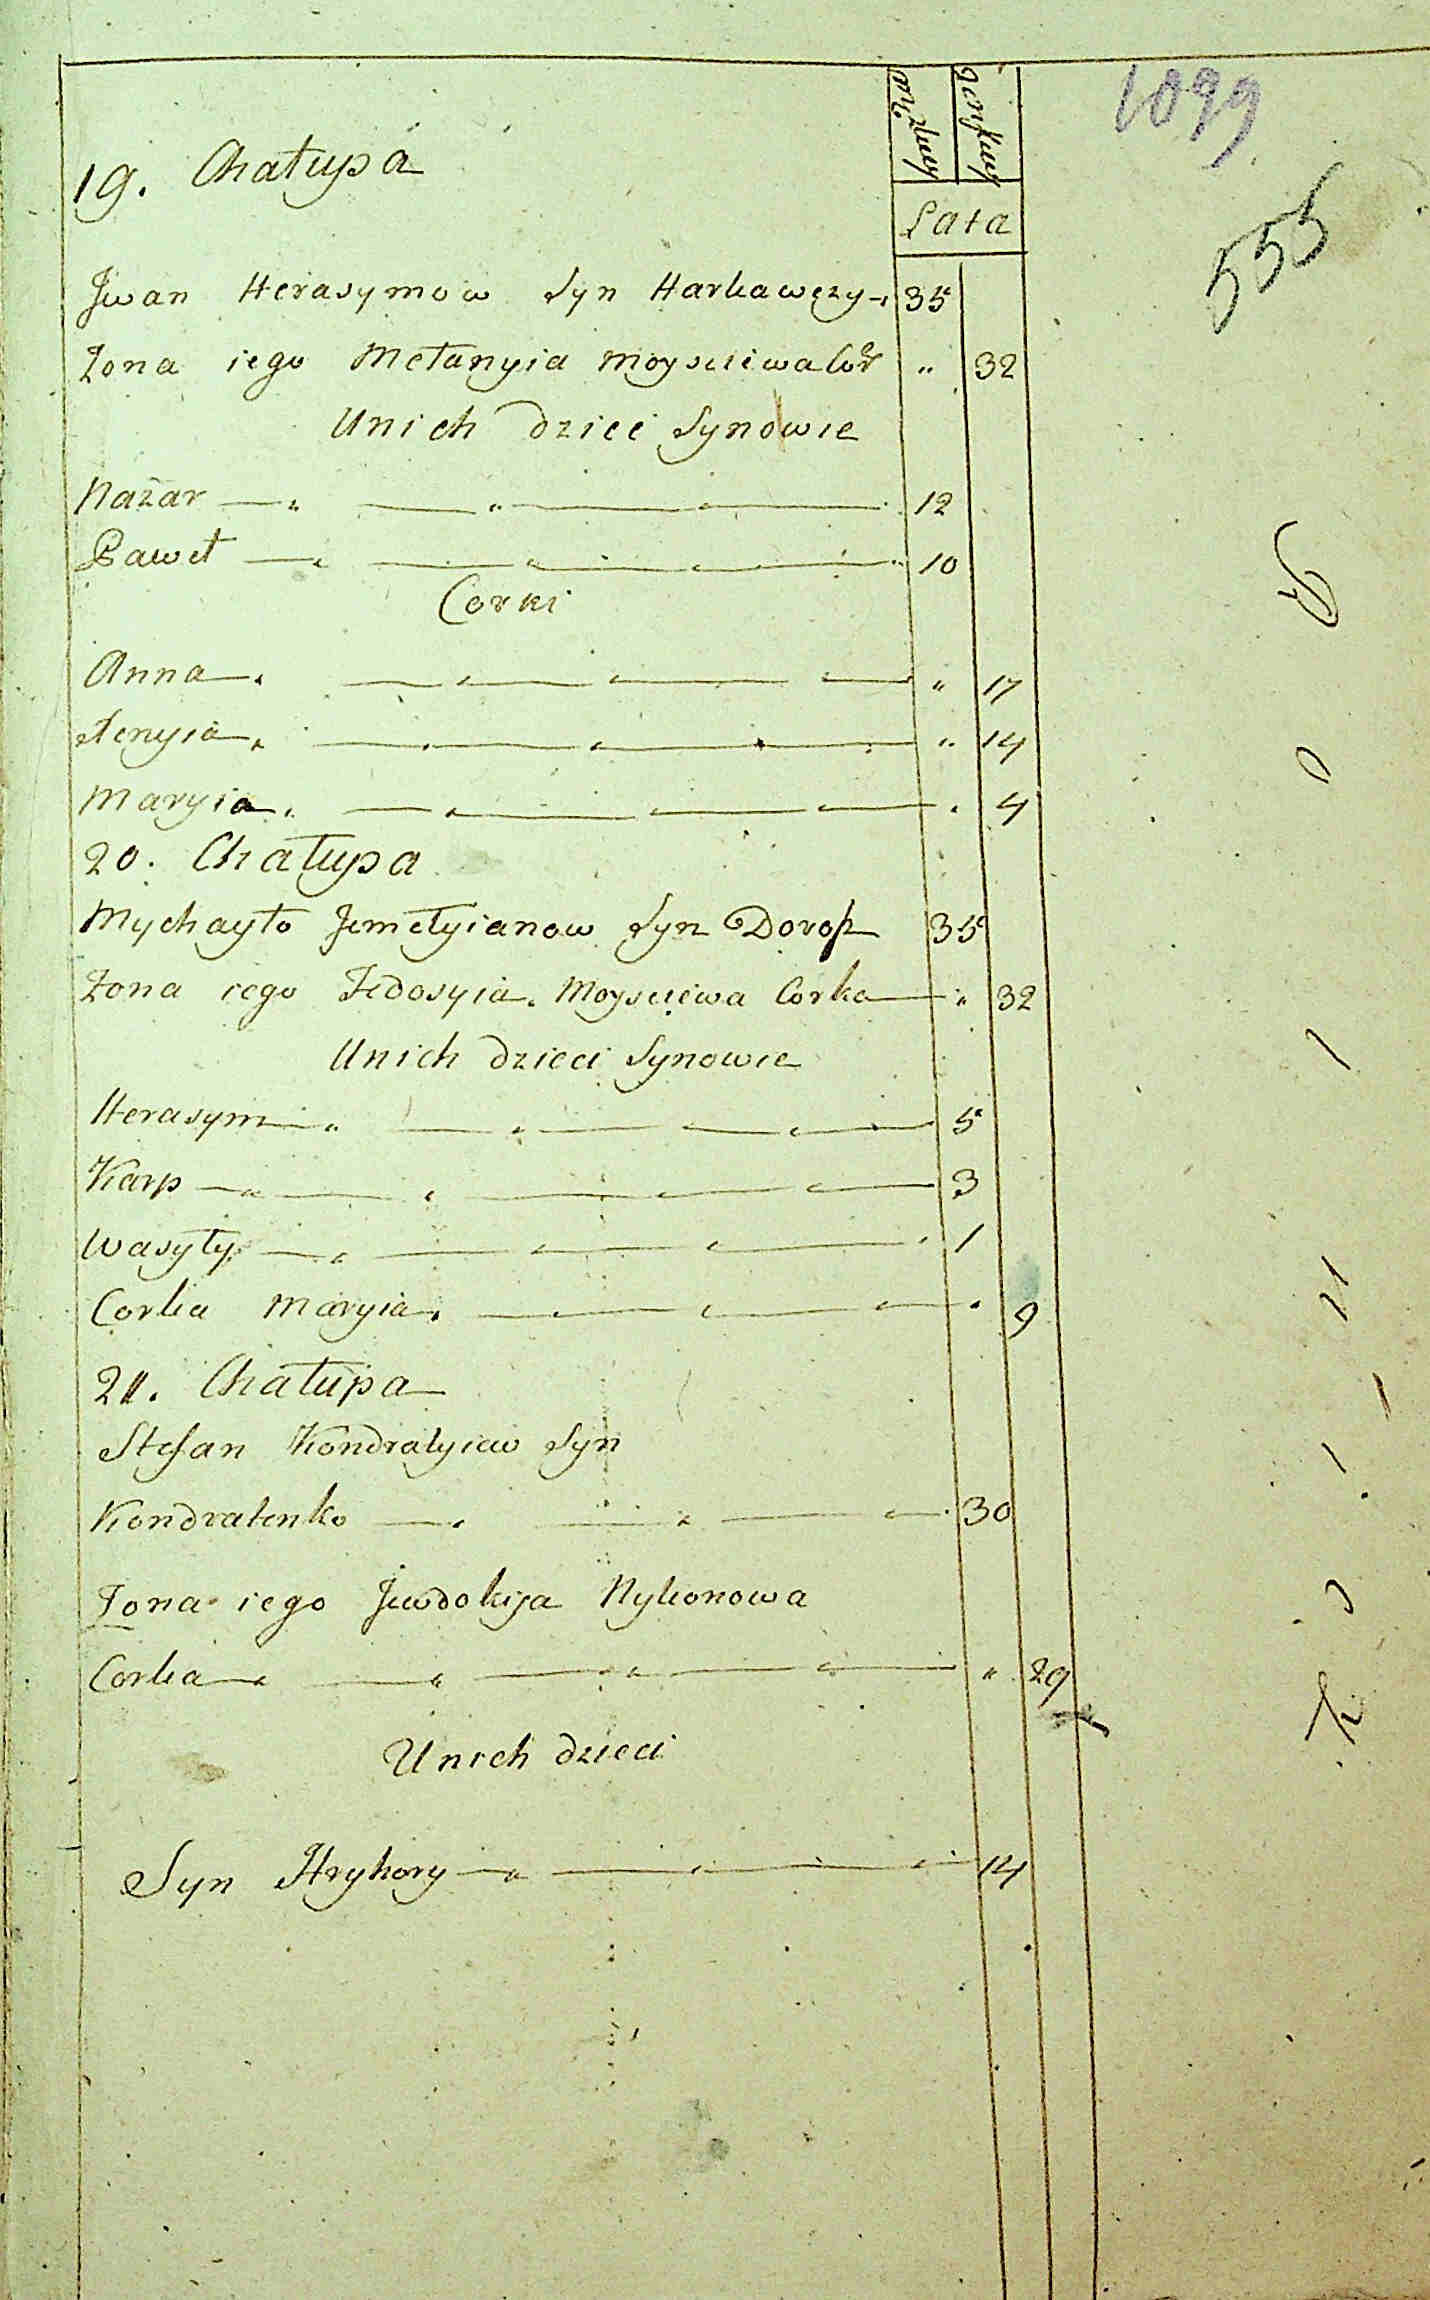 1099
555
męzkey żeńskey
Lata
19. Chałupa
Jwan Herasymow Syn Harkawczy 35
Żona iego Mełanyia Moysieiwa Cór " 32
Unich dzieci Synowie
Nazar 12
Paweł 10
Corki
Anna " 17
" 14
Maryia " 4
20. Chałupa
Mychayło Jemełyianow Syn Dorosz 35
Żona iego Fedosyia Moysieiewa Corka " 32
Unich dzieci Synowie
Herasym 5
Karp 3
Wasyły 1
Corka Maryia " 9
21. Chałupa
Stefan Kondratyiew Syn
Kondratenko 30
Żona iego Jewdokija Nykonowa
Corka " 29
Unich dzieci
Syn Hryhory 14